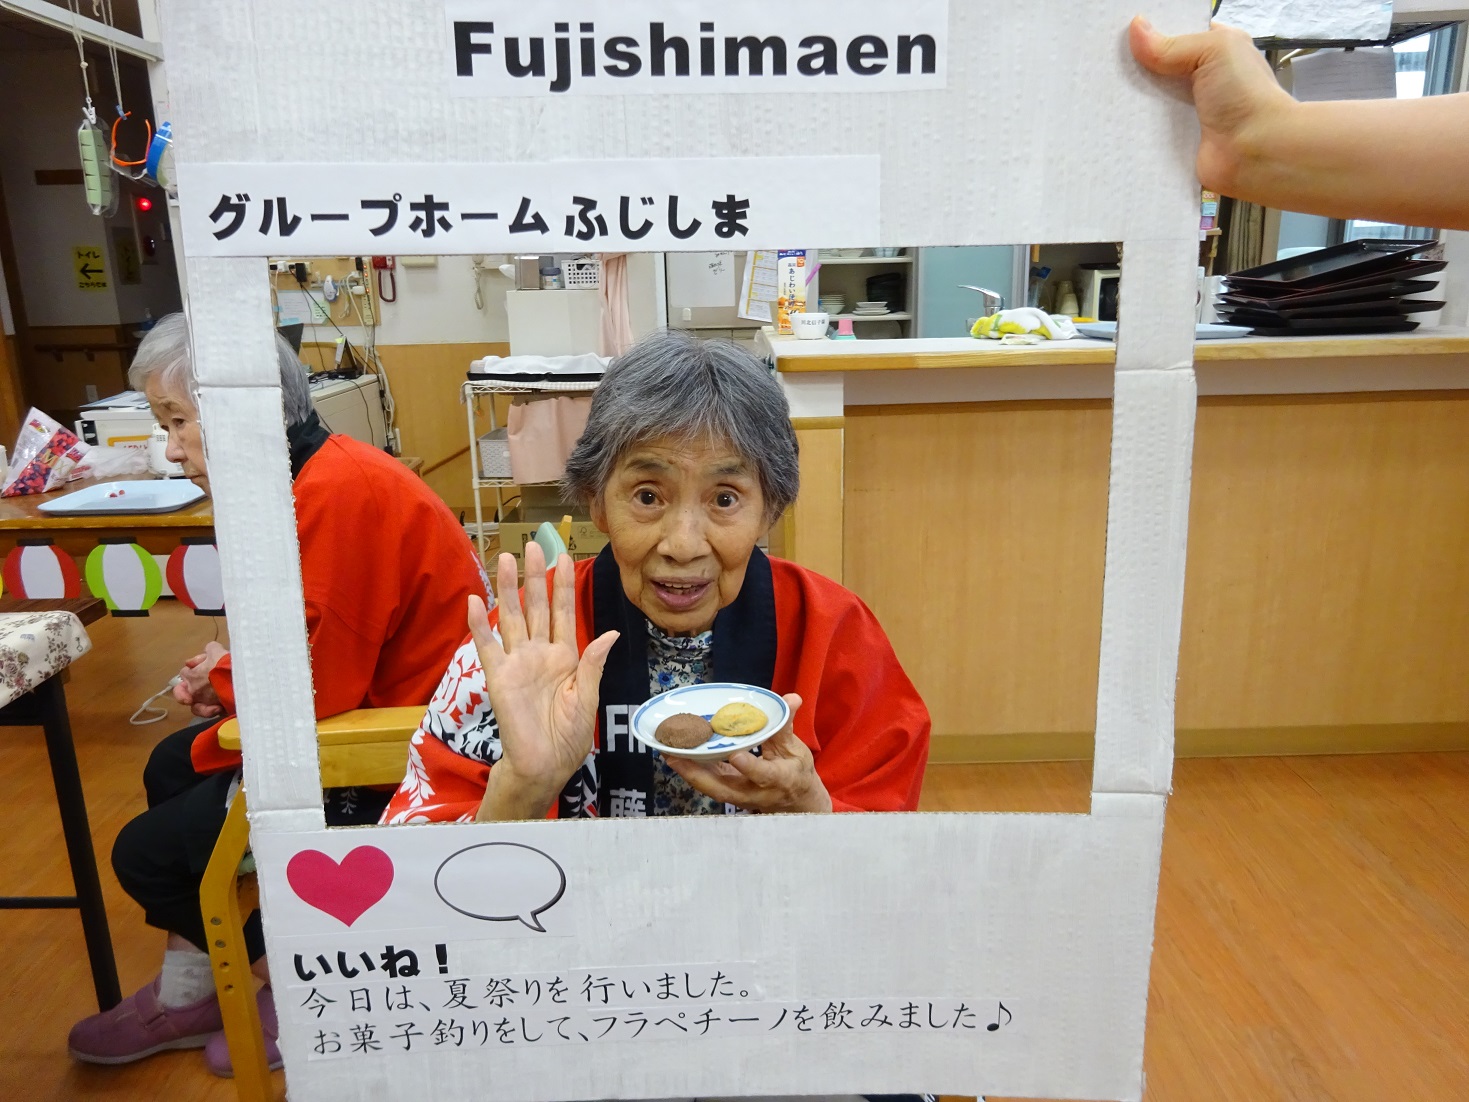 Fujishimaen
グループホームふじしま
トイレ
藤
いいね!
今日は、夏祭りを行いました。
お菓子釣りをして、フラペチーノを飲みました♪